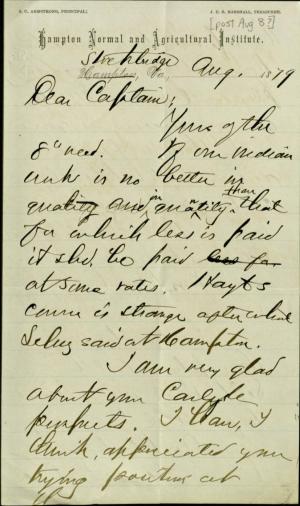 S. C. ARMSTRONG, PRINCIPAL.
J. F. B. MARSHALL, TREASURER.
[post Aug 8?]
Hampton Normal and Agricultural Institute.
Stockbridge
Hampton, Va., Aug. 1879
Dear Captain;
Yours of the
8" recd. If our Indian
work is no better in
quality and in quantity than that
for which less is paid
it shd. be paid less for
at same rates. Hayt's
course is strange after what
he said at Hampton.
I am very glad
about your Carlyle
prospects. I have, I
think, appreciated your
trying position at